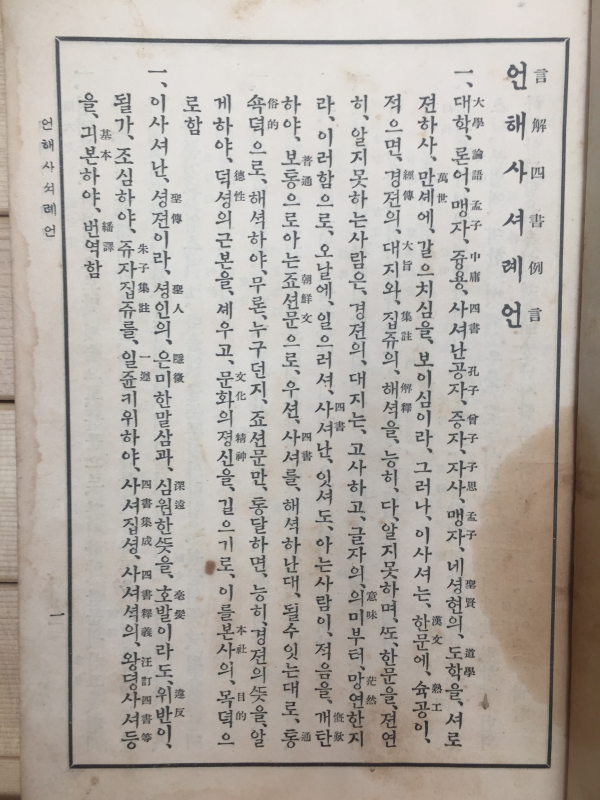 言解四書例言
언해사셔례언
大學 論語 孟子 中庸 四書 孔子 曾子 子思 孟子 聖賢 道學
一、대학、론어、맹자、즁용、사셔난공자、증자、자사、맹자、네셩현의、도학을、셔로
萬世 漢文 熟工
젼하사、만셰에、갈으치심을、보이심이라、그러나、이사셔는、한문에、슉공이、
經傳 大旨 集註 解釋
적으면、경젼의、대지와、집쥬의、해셕을、능히、다、알지못하며、ᄯᅩ、한문을、젼연
意味 茫然
히、알지못하는사람은、경젼의、대지는、고사하고、글자의、의미부터、망연한지
四書 慨歎
라、이러함으로、오날에、일으러셔、사셔난、잇셔도、아는사람이、적음을、개탄
普通 朝鮮文 四書 通
하야、보통으로아는죠션문으로、우션、사셔를、해셕하난대、될수잇는대로、통
俗的
쇽덕으로、해셕하야、무론、누구던지、죠션문만、통달하면、능히、경젼의ᄯᅳᆺ을、알
德性 文化 精神 本社 目的
게하야、덕셩의근본을、셰우고、문화의졍신을、길으기로、이를본사의、목덕으
로함
聖傳 聖人 隱微 深遠 毫髮 違反
一、이사셔난、셩젼이라、셩인의、은미한말삼과、심원한ᄯᅳᆺ을、호발이라도、위반이、
朱子集註 一遵 四書集成 四書釋義 汪訂四書等
될가、조심하야、쥬자집쥬를、일쥰키위하야、사셔집셩、사셔셕의、왕뎡사셔등
基本 繙譯
을、긔본하야、번역함
언해사셔례언
一